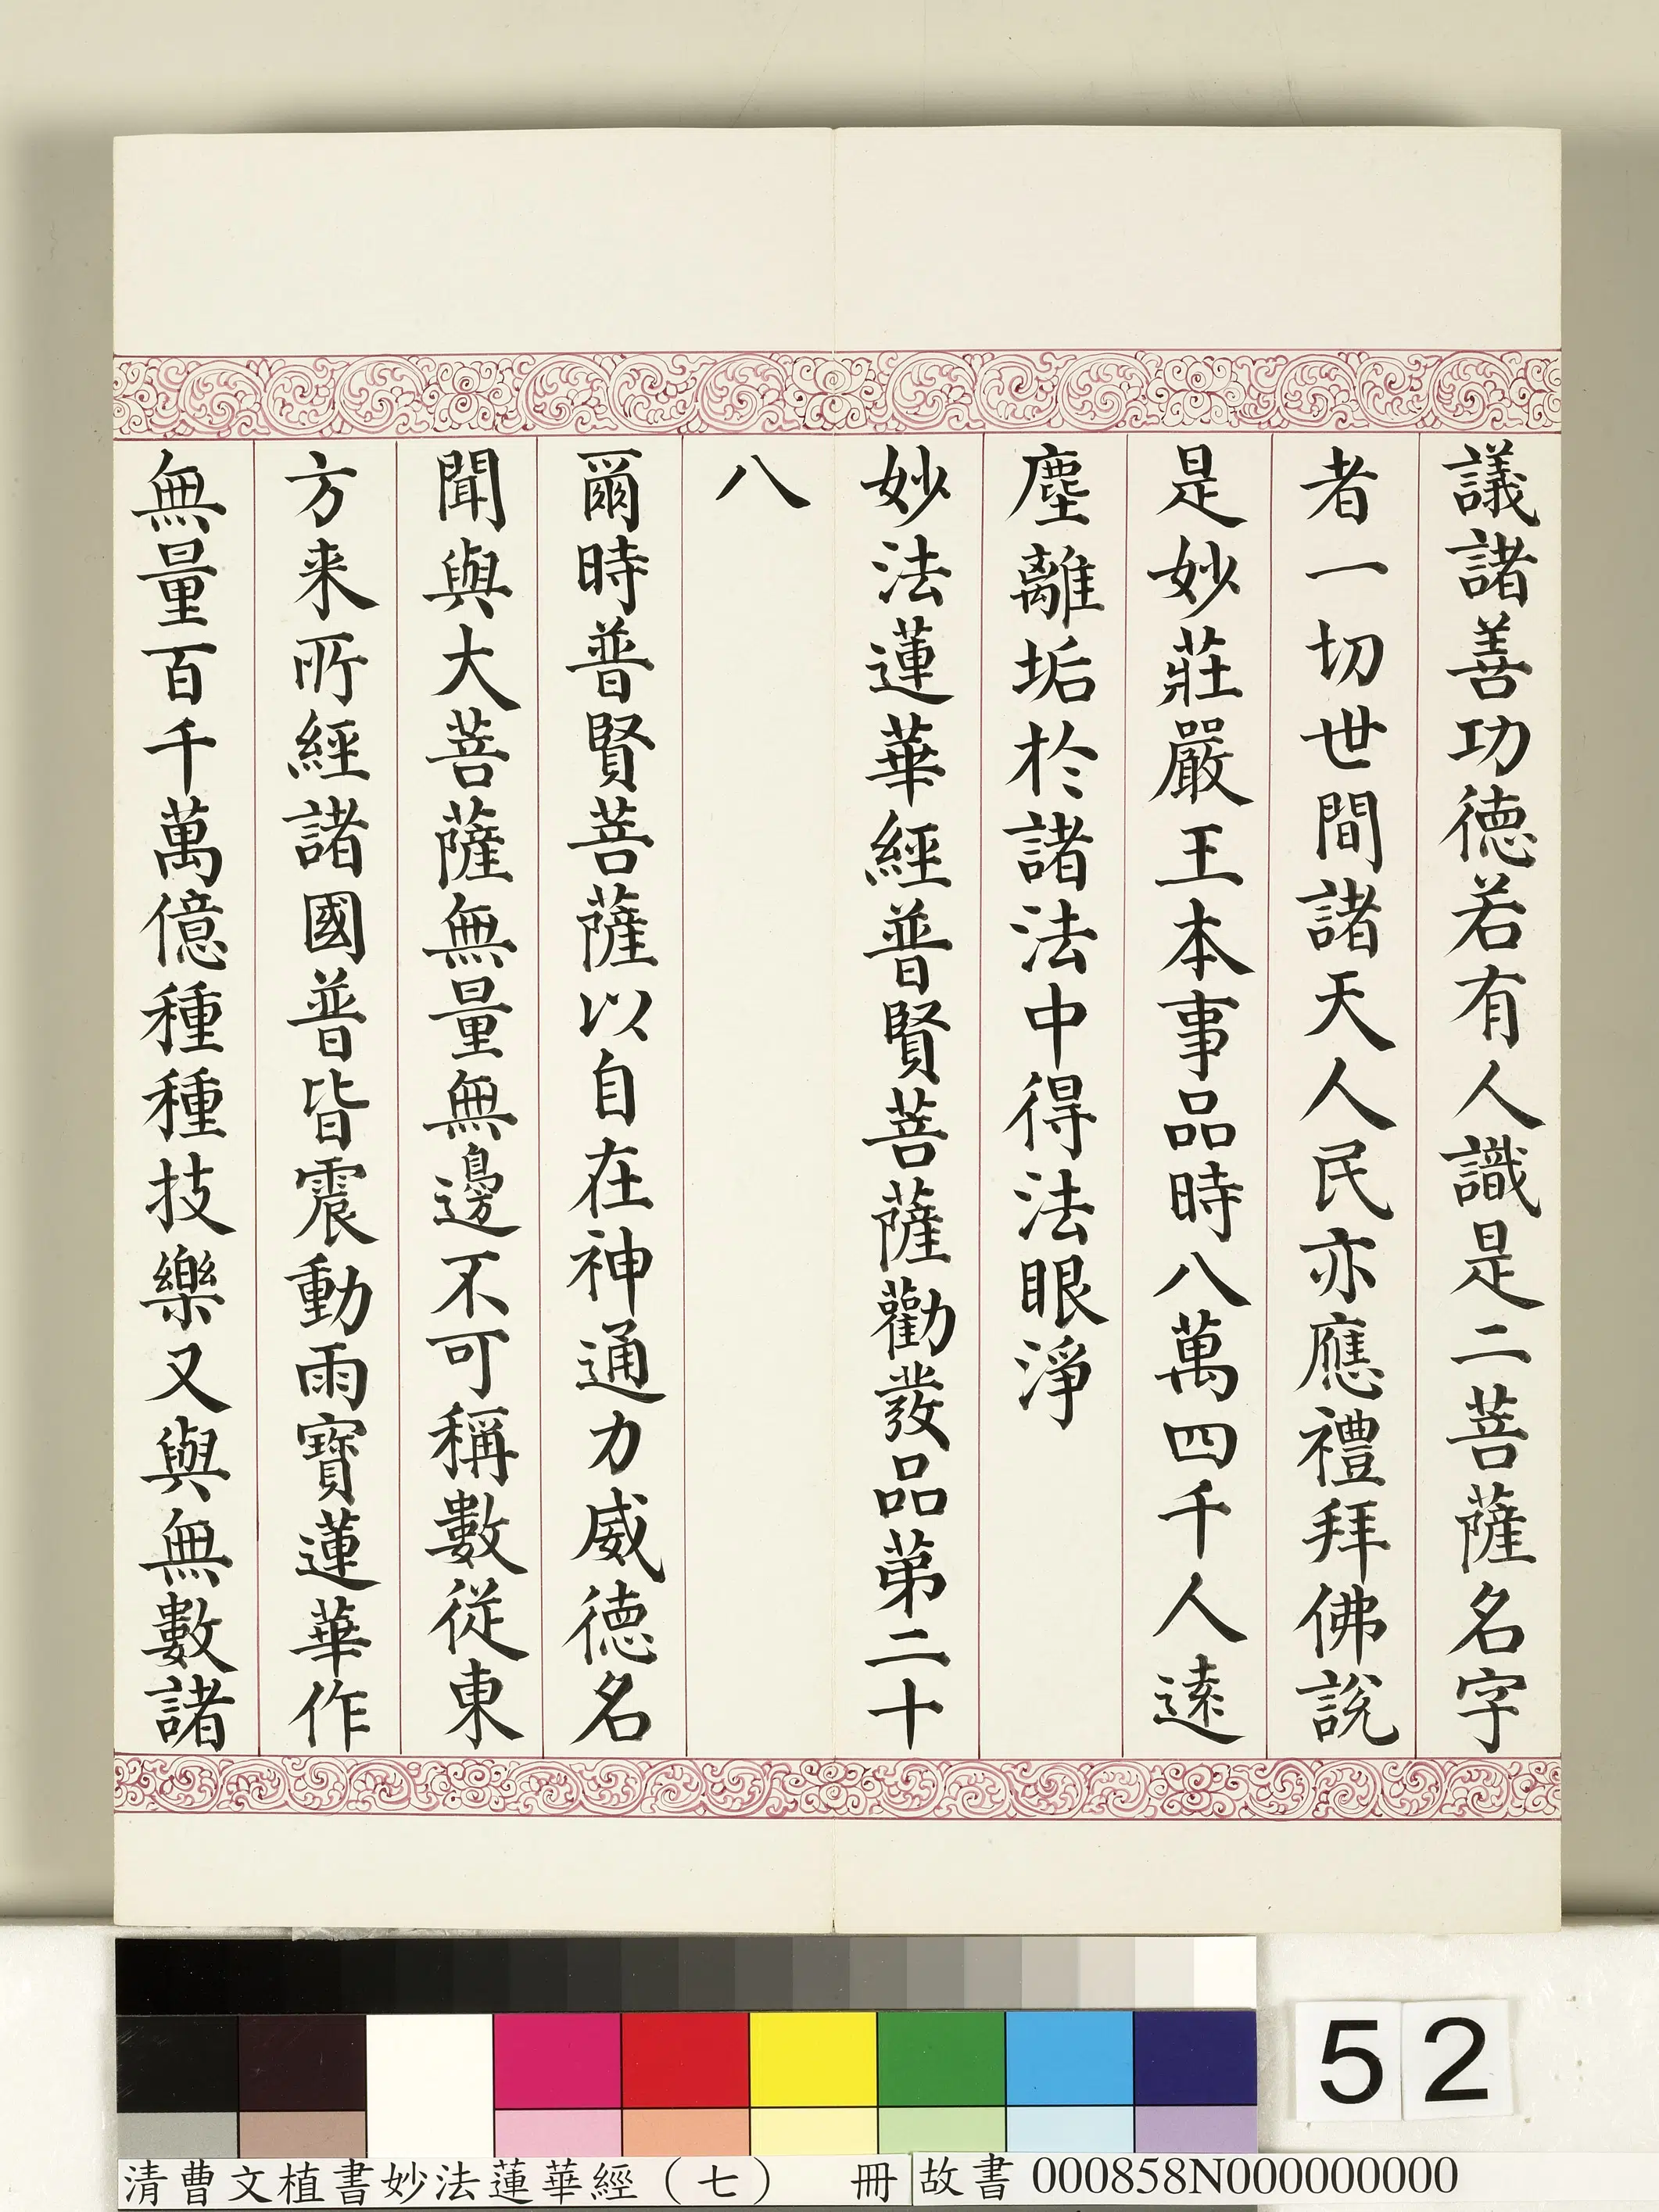 議諸善功德若有人識是二菩薩名字
者一切世間諸天人民亦應禮拜佛說
是妙莊嚴王本事品時八萬四千人遠
塵離垢於諸法中得法眼淨
妙法蓮華經普賢菩薩勸發品第二十
八
爾時普賢菩薩以自在神通力威德名
聞與大菩薩無量無邊不可稱數從東
方来所經諸國普皆震動雨寶蓮華作
無量百千萬億種種技樂又與無數諸
52
清曹文植書妙法蓮華經（七） 冊 故書 000858N000000000